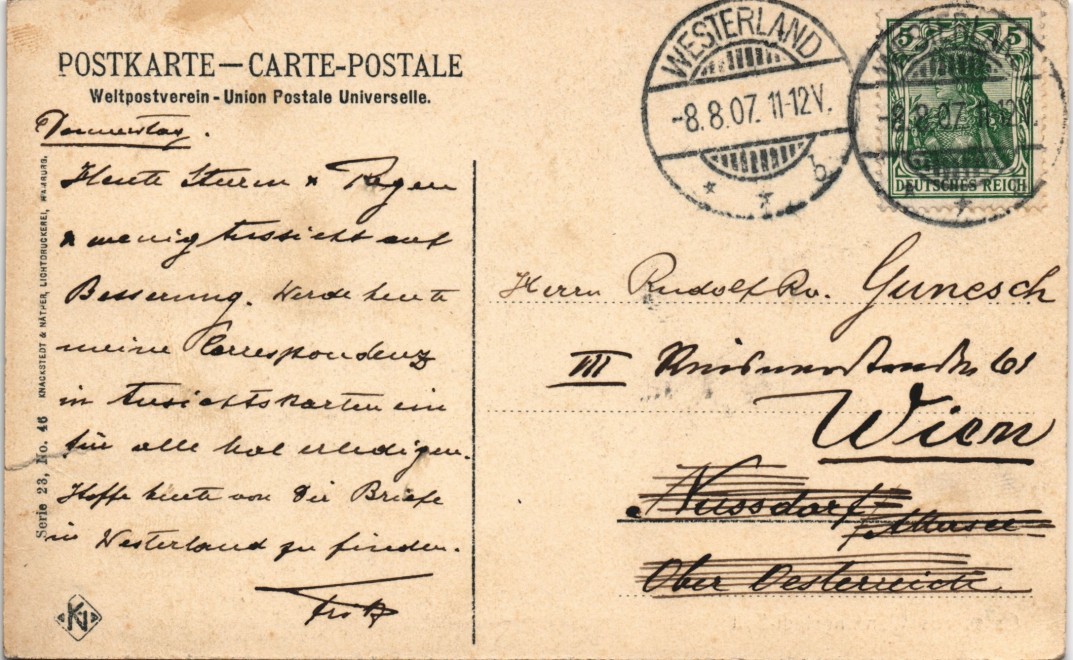 POSTKARTE — CARTE-POSTALE
Weltpostverein - Union Postale Universelle.
WESTERLAND
-8.8.07. 11-12V.
b
* *
WESTERLAND
-8.8.07. 11-12V.
5 5
DEUTSCHES REICH
Donnerstag.
Heute Sturm & Regen
& wenig Aussicht auf
Besserung. Werde heute
meine Correspondenz
in Ansichtskarten ein
für alle Mal erledigen.
Hoffe heute von Dir Briefe
in Westerland zu finden.
Fritz
Herrn Rudolf Rv. Gunesch
III 61
Wien
Nussdorf Attersee
Ober Oesterreich
Serie 23, No. 46 KNACKSTEDT & NÄTHER, LICHTDRUCKEREI, HAMBURG.
KN